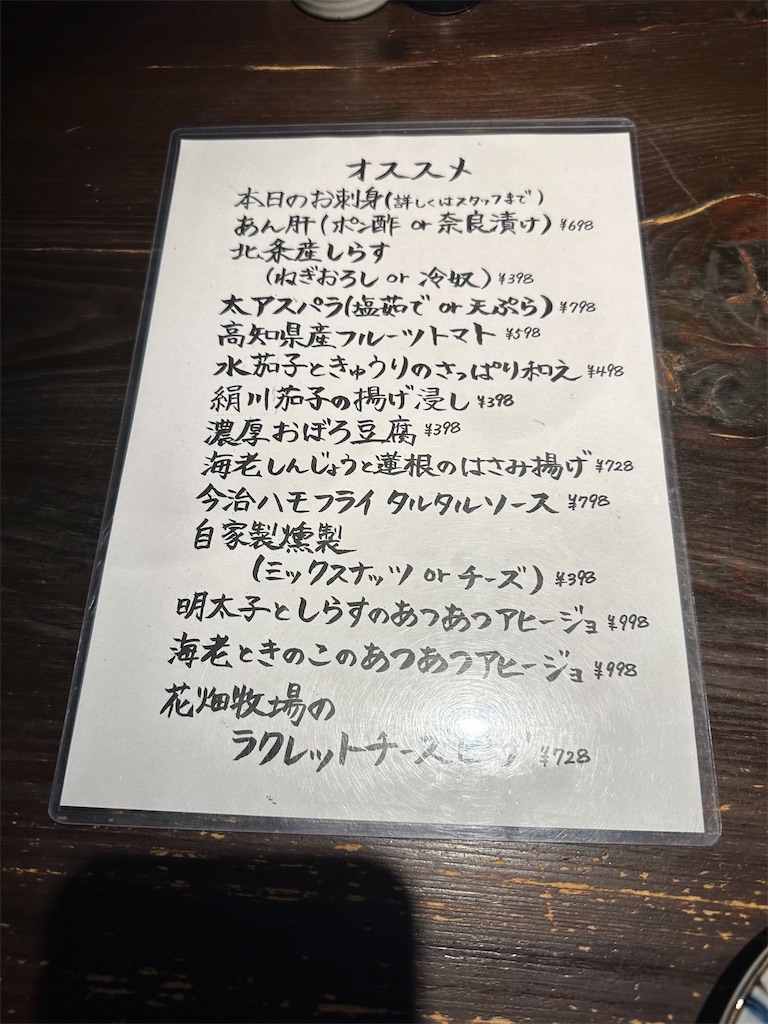 オススメ
本日のお刺身(詳しくはスタッフまで)
あん肝(ポン酢 or 奈良漬け) ¥698
北条産しらす
(ねぎおろし or 冷奴) ¥398
太アスパラ(塩茹で or 天ぷら) ¥798
高知県産フルーツトマト ¥598
水茄子ときゅうりのさっぱり和え ¥498
絹川茄子の揚げ浸し ¥398
濃厚おぼろ豆腐 ¥398
海老しんじょうと蓮根のはさみ揚げ ¥728
今治ハモフライ タルタルソース ¥798
自家製燻製
(ミックスナッツ or チーズ) ¥398
明太子としらすのあつあつアヒージョ ¥998
海老ときのこのあつあつアヒージョ ¥998
花畑牧場の
ラクレットチーズピザ ¥728